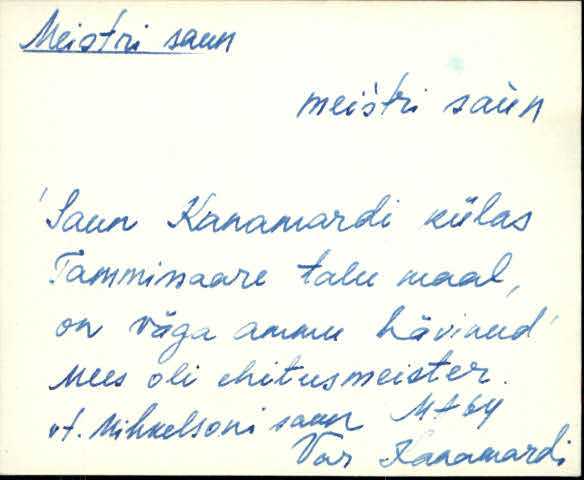 Meistri saun
meìstri saùn
'Saun Kanamardi külas
Tamminaare talu maal,
on väga ammu hävinud'
Mees oli ehitusmeister.
vt. Mihkelsoni saun Mt 64
Var Kanamardi